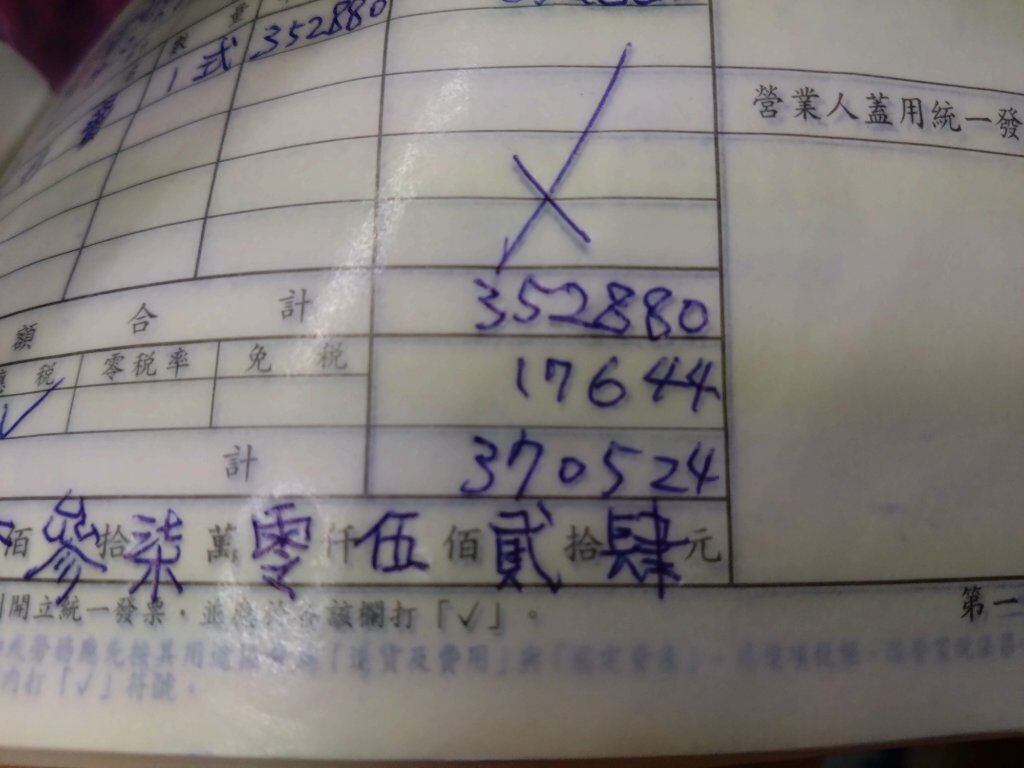 量
1 式 352880
營業人蓋用統一發
額 合 計 352880
應 稅 零稅率 免 稅 17644
√
計 370524
佰參拾柒萬零仟伍佰貳拾肆元
開立統一發票，並應於各該欄打「√」。
第一
內打「√」符號。